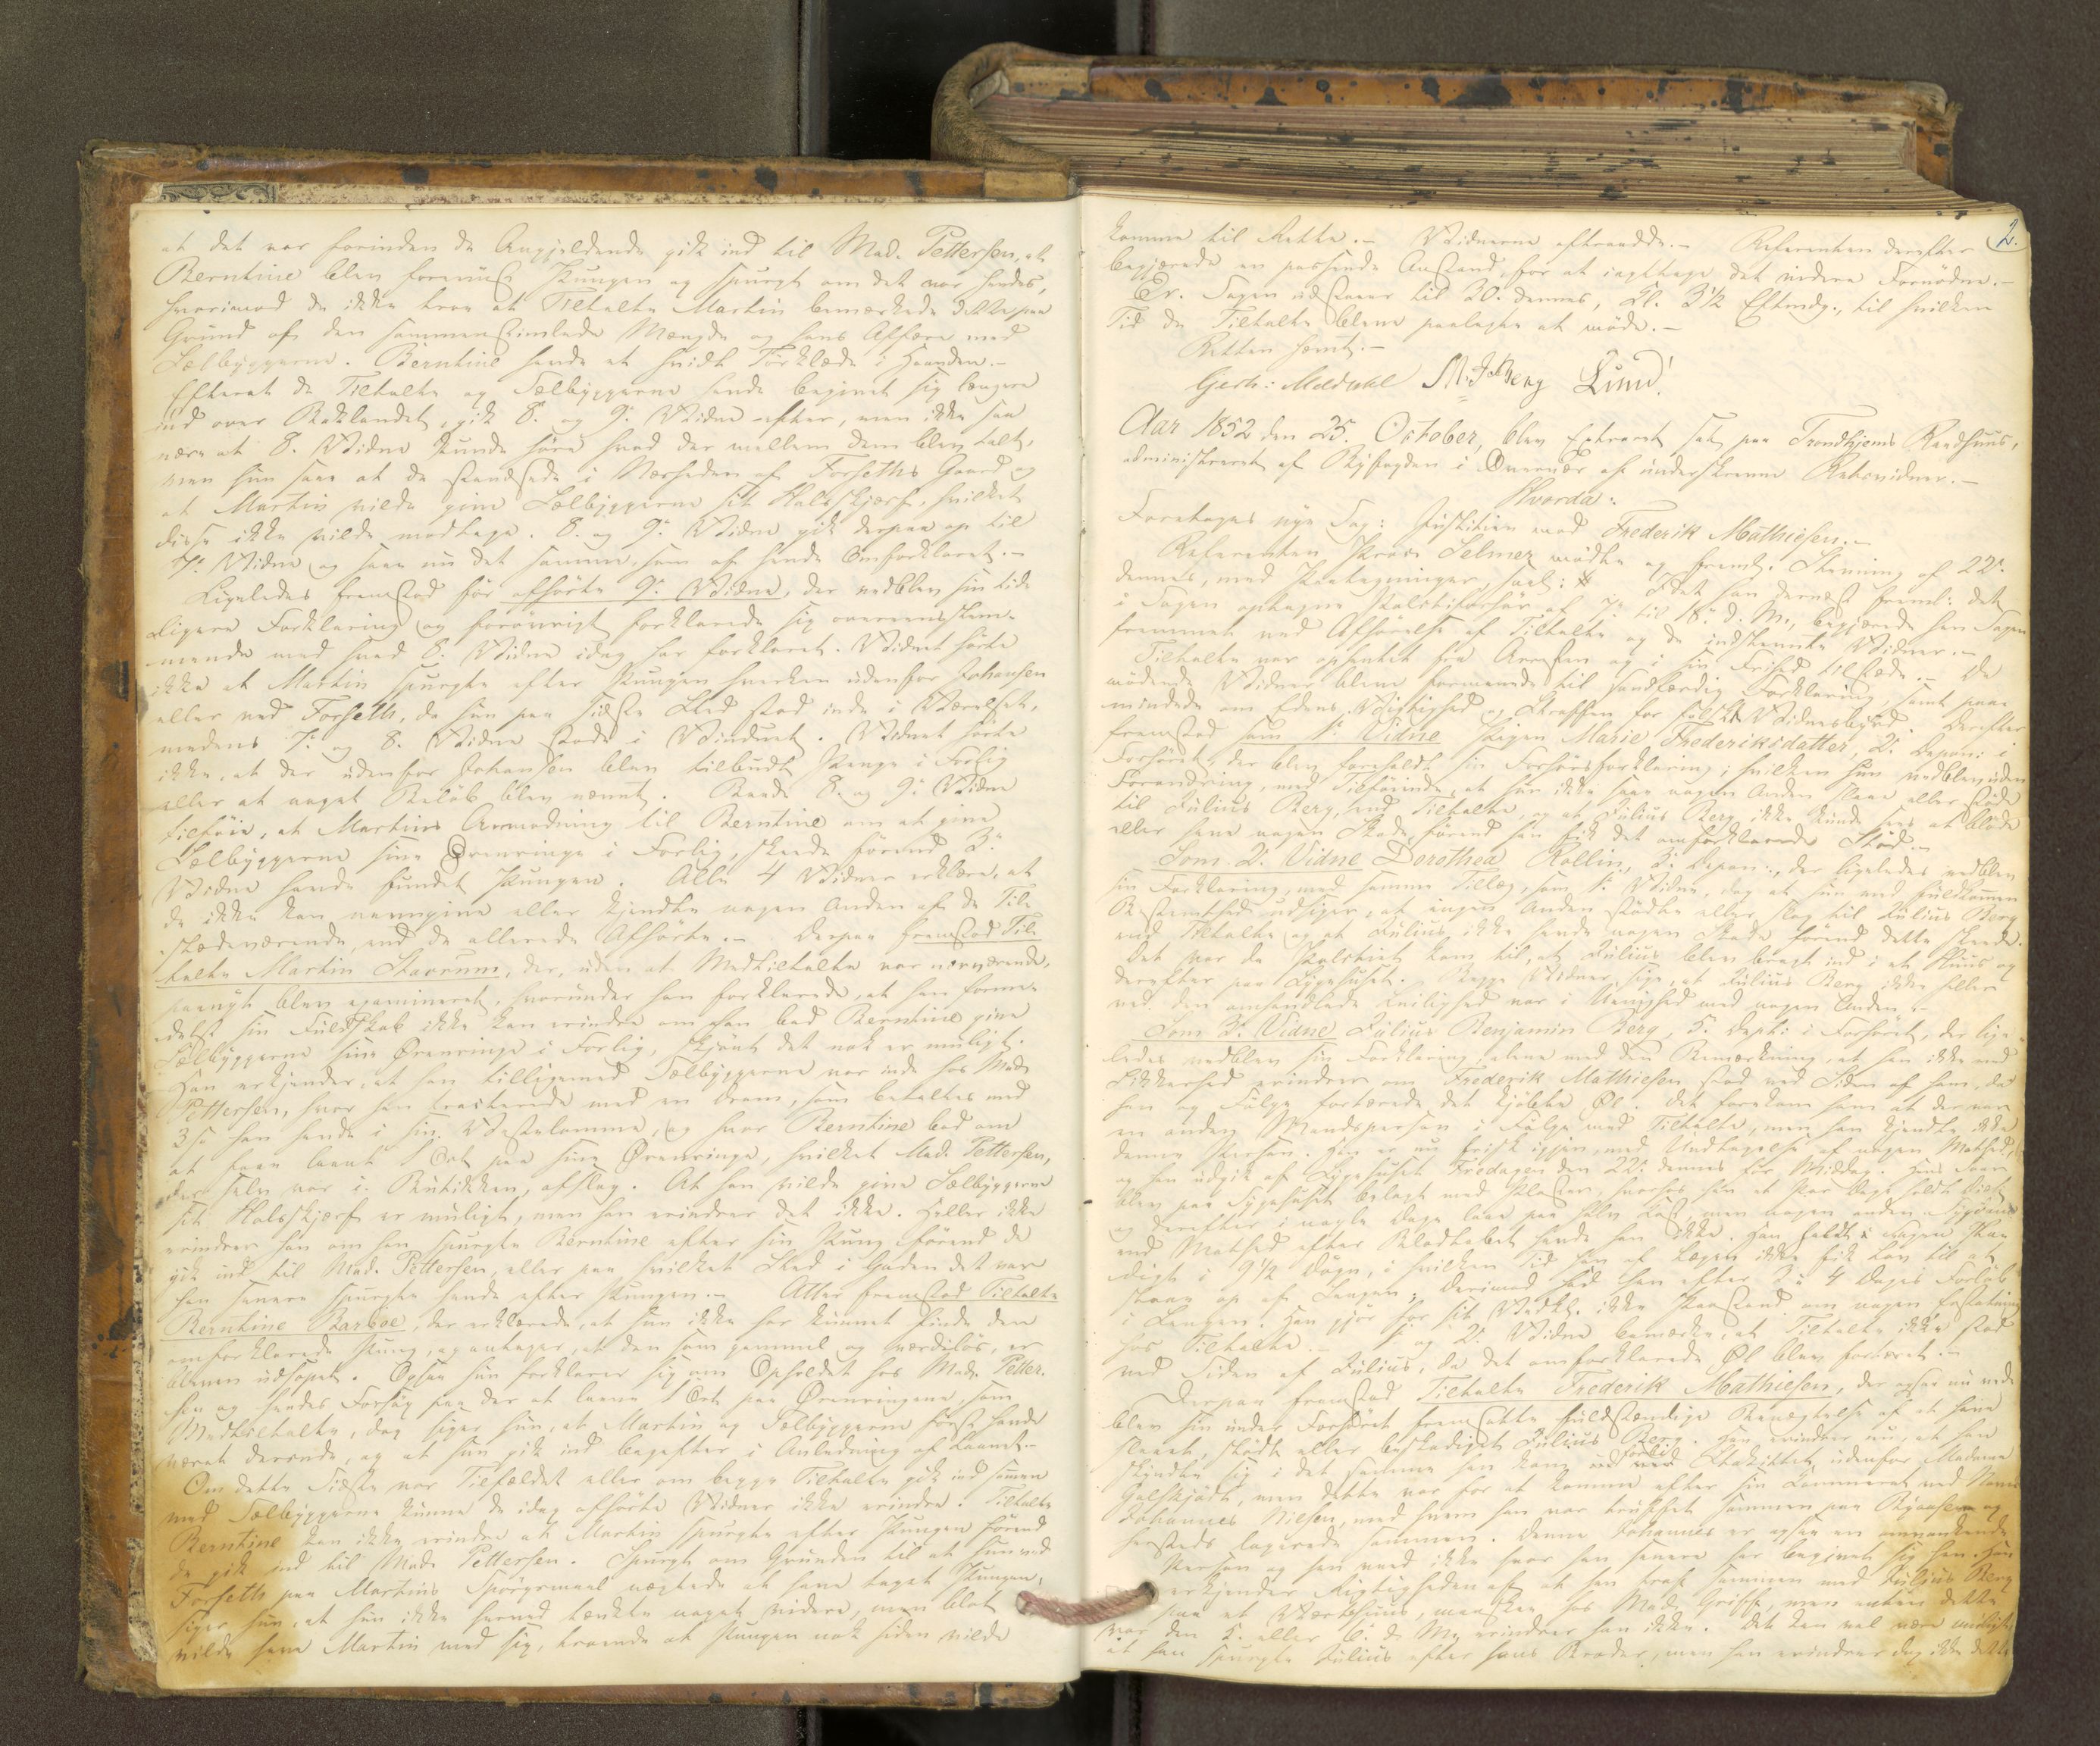 at det var forinden de Angjeldende gik ind til Mad. Pettersen, at
Berntine blev foreviist Pungen og spurgt om det var hendes,
hvorimod de ikke troe at Tiltalte Martin bemærkede dette paa
Grund af den sammenstimlede Mængde og hans Affære med
Sælbyggerne. Berntine havde et hvidt Tørklæde i Haanden.-
Efterat de Tiltalte og Sælbyggerne havde begivet sig længere
ind over Baklandet, gik 8de og 9de Vidne efter, men ikke saa
nære at 8. Vidne kunde høre hvad der mellem dem blev talt,
men hun saae at de standsede i Nærheden af Forseths Gaard og
at Martin vilde give Sælbyggerne sit Halsskjærf, hvilket
disse ikke vilde modtage. 8. og 9de Vidne gik derpaa op til
7de Vidne og saae nu det samme, som af hende omforklaret.-
Ligeledes fremstod før afhørte 9de Vidne, der vedblev sin tid-
ligere Forklaring og forøvrigt forklarede sig overeensstem-
mende med hvad 8. Vidne idag har forklaret. Vidnet hørte
ikke at Martin spurgte efter Pungen hverken udenfor Johansen
eller ved Forseth, da hun paa sidste Sted stod inde i Værelset,
medens 7de og 8. Vidne stode i Vinduet. Vidnet hørte
ikke, at der udenfor Johansen blev tilbudt Penge i Forlig
eller at noget Beløb blev nævnt. Baade 8. og 9de Vidne
tilføie, at Martins Anmodning til Berntine om at give
Sælbyggerne sine Ørenringe i Forlig, skeede førend 3de
Vidne havde fundet Pungen. Alle 4 Vidner erklære, at
de ikke kan navngive eller kjendte nogen Anden af de Til-
stedeværende, end de allerede Afhørte.- Derpaa fremstod Til-
talte Martin Stavrum, der, uden at Medtiltalte var nærværende,
paanyt blev examineret, hvorunder han forklarede, at han forme-
delst sin Fuldskab ikke kan erindre om han bad Berntine give
Sælbyggerne sine Ørenringe i Forlig, skjønt det nok er muligt.
Han erkjender, at han tilligemed Sælbyggerne var inde hos Mad.
Pettersen, hvor han tracterede med en Dram, som betaltes med
3 s han havde i sin Vestelomme, og hvor Berntine bad om
at faae laant 1 Ort paa sine Ørenringe, hvilket Mad. Pettersen,
der selv var i Butikken, afslog. At han vilde give Sælbyggerne
sit Halsskjærf er muligt, men han erindrer det ikke. Heller ikke
erindrer han om han spurgte Berntine efter sin Pung førend de
gik ind til Mad. Pettersen, eller paa hvilket Sted i Gaden det var
han senere spurgte hende efter Pungen.- Atter fremstod Tiltalte
Berntine Barboe, der erklærede, at hun ikke har kunnet finde den
omforklarede Pung, og antager, at den som gammel og værdiløs, er
bleven udsopet. Ogsaa hun forklarer sig om Opholdet hos Mad. Petter-
sen og hendes Forsøg paa der at laane 1 Ort paa Ørenringene som
Medtiltalte, dog siger hun, at Martin og Sælbyggerne først havde
været derinde, og at hun gik ind bagefter i Anledning af Laanet.-
Om dette Sidste var Tilfældet eller om begge Tiltalte gik ind sammen
med Sælbyggerne kunne de idag afhørte Vidner ikke erindre. Tiltalte
Berntine kan ikke erindre at Martin spurgte efter Pungen førend
de gik ind til Mad. Pettersen. Spurgt om Grunden til at hun ved
Forseth paa Martins Spørgsmaal nægtede at have taget Pungen,
siger hun, at hun ikke herved tænkte noget videre, men blot
vilde have Martin med sig, troende at Pungen nok siden vilde
2.
komme til Rette.- Vidnerne aftraadte.- Referenten derefter
begjærede en passende Anstand, for at iagttage det videre Fornødne.-
Er. Sagen udstaaer til 30. dennes, Kl. 3½ Eftmdg., til hvilken
Tid de Tiltalte bleve paalagte at møde.-
Retten hævet.-
Gjerh: Meldahl M. J. Berg Lund.
Aar 1852 den 25. October, blev Extraret sat paa Trondhjems Raadhuus,
administreret af Byfogden i Overvær af underskrevne Retsvidner.-
Hvorda:
Foretoges nye Sag: Justitien mod Frederik Mathiesen.-
Referenten Procr Selmer mødte og freml. Stevning af 22de
dennes, med Paategninger, saal: Idet han dernæst freml: det
i Sagen optagne Politiforhør af 7de til 18de d. M., begjærede han Sagen
fremmet ved Afhørelse af Tiltalte og de indstevnte Vidner.-
Tiltalte var afhentet fra Arresten og i sin Frihed tilstede.- De
mødende Vidner bleve formanede til sandfærdig Forklaring, samt paa-
mindede om Edens Vigtighed og Straffen for falsk Vidnesbyrd. Derefter
fremstod som 1te Vidne Pigen Marie Frederiksdatter, 2. Depon: i
Forhøret, der blev foreholdt sin Forhørsforklaring, hvilken hun vedblev uden
Forandring, med Tilføiende, at hun ikke saae nogen Anden slaae eller støde
til Julius Berg, end Tiltalte, og at Julius Berg ikke kunde sees at bløde
eller have nogen Skade, førend han fik det omforklarede Stød.-
Som 2. Vidne Dorothea Rollin, 3. Depon:, der ligeledes vedblev
sin Forklaring, med samme Tillæg, som 1te Vidne, dog at hun med fuldkommen
Bestemthed udsiger, at ingen Anden stødte eller slog til Julius Berg
end Tiltalte og at Julius ikke havde nogen Skade førend dette skeede.
Det var da Politiet kom til, at Julius blev bragt ind i et Huus og
derefter paa Sygehuset. Begge Vidner sige, at Julius Berg ikke heller
ved den omhandlede Leilighed var i Uenighed med nogen Anden.-
Som 3. Vidne Julius Benjamin Berg, 5. Dept: i Forhøret, der lige-
ledes vedblev sin Forklaring, alene med den Bemærkning, at han ikke med
Sikkerhed erindrer om Frederik Mathiesen stod ved Siden af ham, da
han og Følge fortærede det kjøbte Øl. Det forekom ham at der var
en anden Mandsperson i Følge med Tiltalte, men han kjendte ikke
denne Person. Han er nu frisk igjen, med Undtagelse af nogen Mathed,
og han udgik af Sygehuset Fredagen den 22. dennes før Middag. Hans Saar
blev paa Sygehuset belagt med Plaster, hvorhos han et Par Dage holdt Diæt
og derefter i nogle Dage laae paa halv Kost, men nogen anden Sygdom
end Mathed efter Blodtabet havde han ikke. Han holdt i Sengen stæ-
digt i 9½ Døgn, i hvilken Tid han af Lægen ikke fik Lov til at
staae op af Sengen; derimod sad han efter 3 à 4 Dages Forløb
i Sengen. Han gjør for sit Vedk. ikke Paastand om nogen Erstatning
hos Tiltalte.- 1. og 2. Vidne bemærke, at Tiltalte ikke stod
ved Siden af Julius, da det omforklarede Øl blev fortæret.-
Derpaa fremstod Tiltalte Frederik Mathiesen, der ogsaa nu ved-
blev sin under Forhøret fremsatte fuldstændige Benægtelse af at have
slaaet, stødt eller beskadiget Julius Berg. Han erindrer nu, at han
skyndte sig i det samme han kom forbi Stakittet udenfor Madame
Galskjødt, men dette var for at komme efter sin Kammerat ved Navn
Johannes Nielsen, med hvem han var truffet sammen paa Byaasen og
hersteds logerede sammen. Denne Johannes er ogsaa en omvankende
Person og han veed ikke hvor han senere har begivet sig hen. Han
erkjender Rigtigheden af at han traf sammen med Julius Berg
paa et Værtshuus, maaskee hos Mad. Griff, men enten dette
var den 5. eller 6. d. M., erindrer han ikke. Det kan vel være muligt
at han spurgte Julius efter hans Broder, men han erindrer dog ikke dette